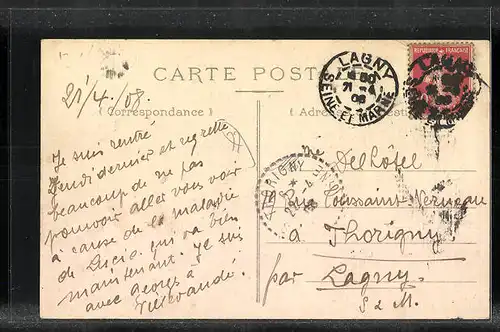 CARTE POSTALE
21/4/08
(Correspondance)
(Adresse
Je suis rentré
Jeudi dernier et regrette
beaucoup de ne pas
pouvoir aller vous voir
à cause de la maladie
de Lucie, qui va bien
maintenant. Je suis
avec Georges à
LAGNY
21 -4
08
SEINE ET MARNE
RÉPUBLIQUE FRANÇAISE
LAGNY
THORIGNY
22 -4
08
Delhôtel
Rue Toussaint
à Thorigny
par Lagny
S & M.